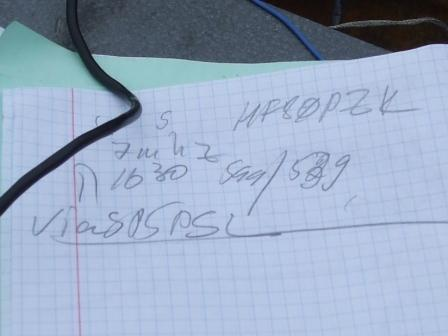 HF80PZK
7mhz
1630 599/599
via SP5PSL